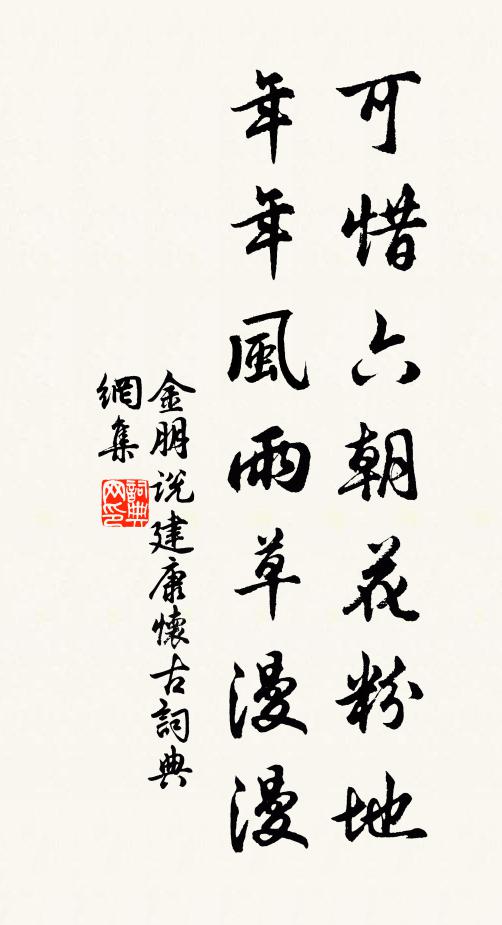 可惜六朝花粉地
年年風雨草漫漫
金朋说建康懷古詞典
網集
詞典
网印